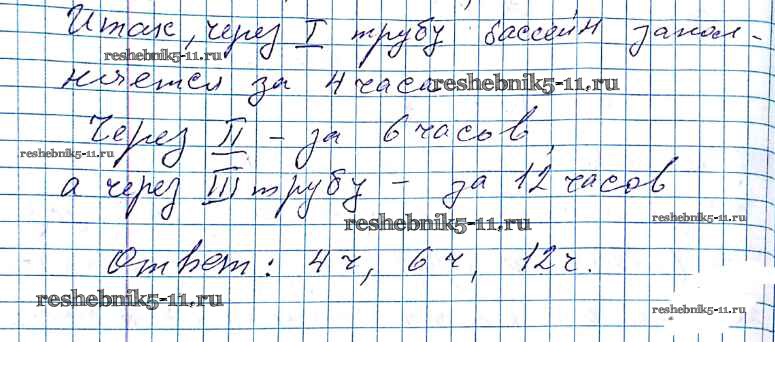 Итак, через I трубу бассейн запол-
reshebnik5-11.ru
няется за 4 часа
reshebnik5-11.ru
Через II - за 6 часов,
reshebnik5-11.ru
а через III трубу - за 12 часов
reshebnik5-11.ru
reshebnik5-11.ru
Ответ: 4 ч, 6 ч, 12 ч.
reshebnik5-11.ru
reshebnik5-11.ru